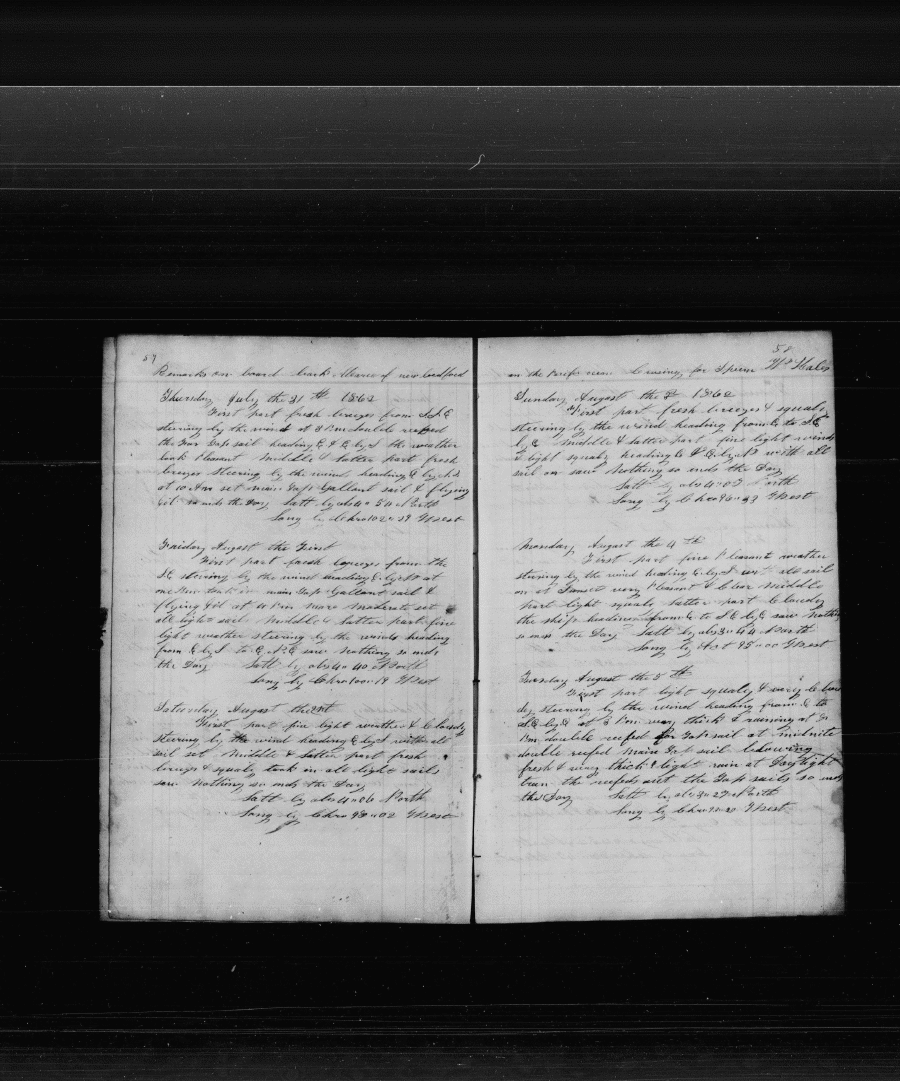 57
Remarks on board bark of new bedford
Thursday July the 31 th 1862
First part fresh breezes from S.S.E
steering by the wind at 3 Pm double reefed
the Fore Top sail heading E & E by S the weather
look Pleasant Middle & latter part fresh
breezes steering by the wind heading E by
at 10 Am set main Top Gallant sail & flying
so ends the Day Latt by obs 4 " 54 North
Long by Chro 102 " 29 West
Friday August the First
First part fresh breezes from the
S.E steering by the wind heading E by at
one took in main Top Gallant sail &
flying at 4 Pm more moderate set
all light sail Middle & latter part fine
light weather steering by the wind heading
from E by S to saw nothing so ends
the Day Latt by obs 4 " 40 North
Long by Chro 100 " 19 West
Saturday August the
First part fine light weather & cloudy
steering by the wind heading E by S with all
sail set Middle & Latter part fresh
breezes & squaly took in all light sails
saw nothing so ends the Day
Latt by obs 4 " 06 North
Long by Chro 98 " 02 West
58
on the Pacific ocean Cruising for Sperm Whales
Sunday August the 3d 1862
First part fresh breezes & squaly
steering by the wind heading from E to S.E
by E Middle & latter part fine light winds
& light squaly heading E & with all
sail on saw Nothing so ends the Day
Latt by obs 4 " 03 North
Long by Chro 96 " 43 West
Monday August the 4 th
First part fine Pleasant weather
steering by the wind heading E by S with all sail
on at Sunset very Pleasant & Clear Middle
part light squaly latter part Cloudy
the ship heading from E to S.E by E saw nothing
so ends the Day Latt by obs 3 " 44 North
Long by 95 " 00 West
Tuesday August the 5 th
First part light squaly & very Cloudy
steering by the wind heading from E to
S.E by E at 3 Pm very thick & raining at
Pm double reefed for Top sail at midnite
double reefed main Top sail blowing
fresh & very thick & light rain at Daylight
turn the reefs out the Top sails so ends
the Day Latt by obs 3 " 27 North
Long by Chro West